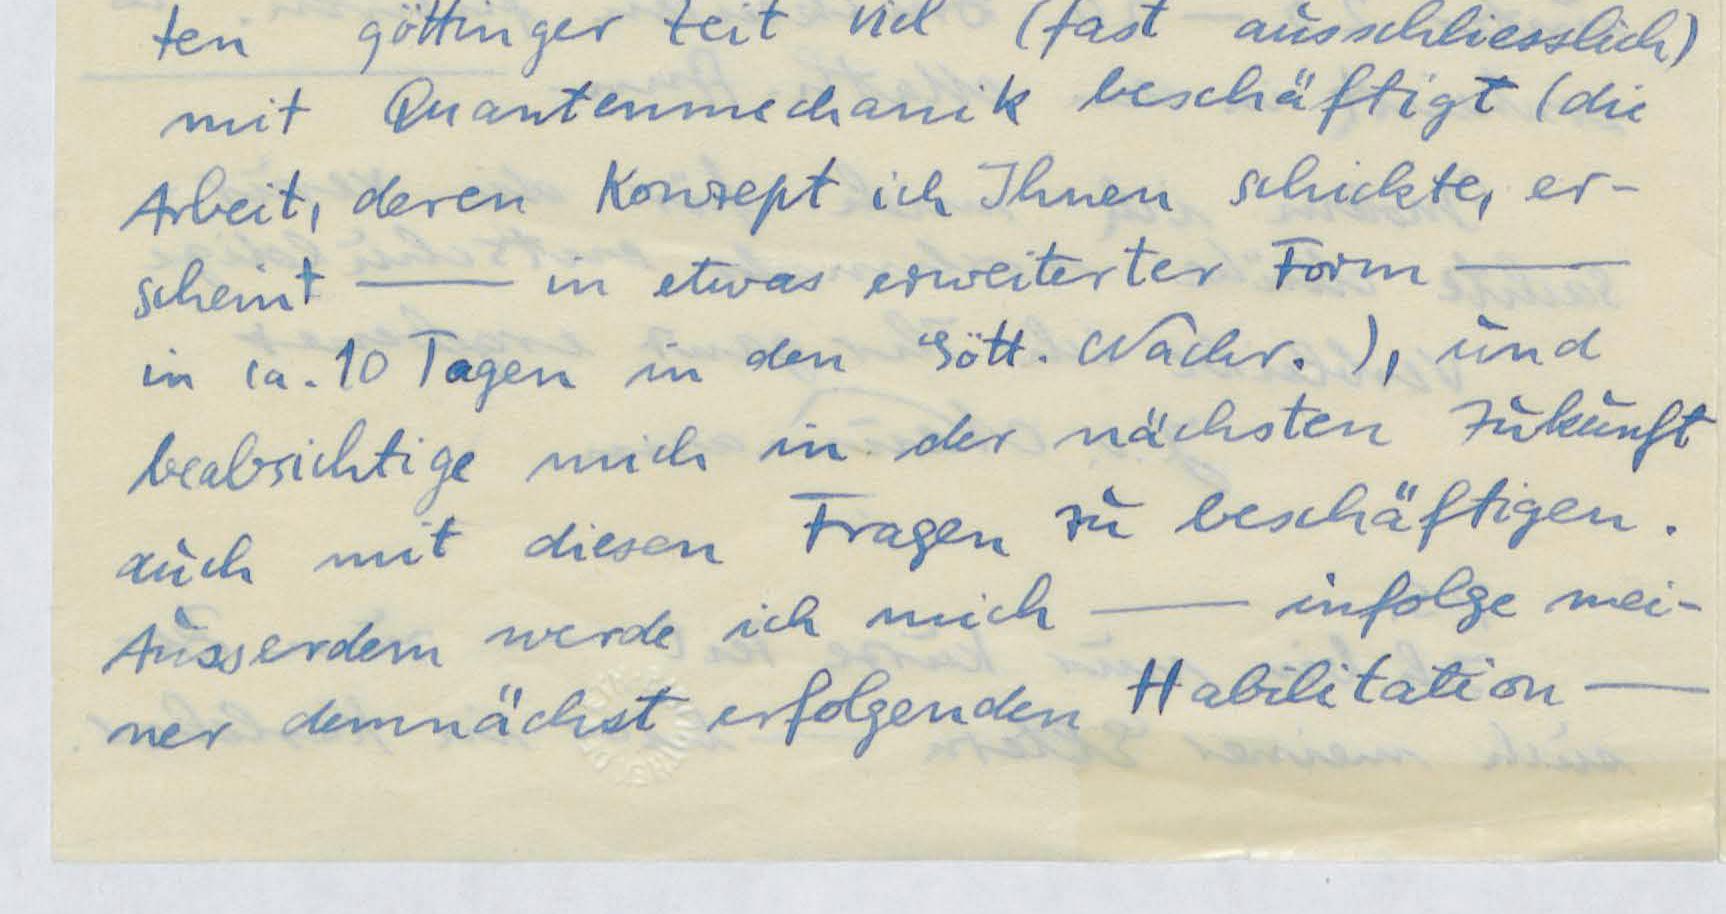 ten göttinger Zeit viel (fast ausschliesslich)
mit Quantenmechanik beschäftigt (die
Arbeit, deren Konzept ich Ihnen schickte, er-
scheint — in etwas erweiterter Form —
in ca. 10 Tagen in den Gött. Nachr.), und
beabsichtige mich in der nächsten Zukunft
auch mit diesen Fragen zu beschäftigen.
Ausserdem werde ich mich — infolge mei-
ner demnächst erfolgenden Habilitation —